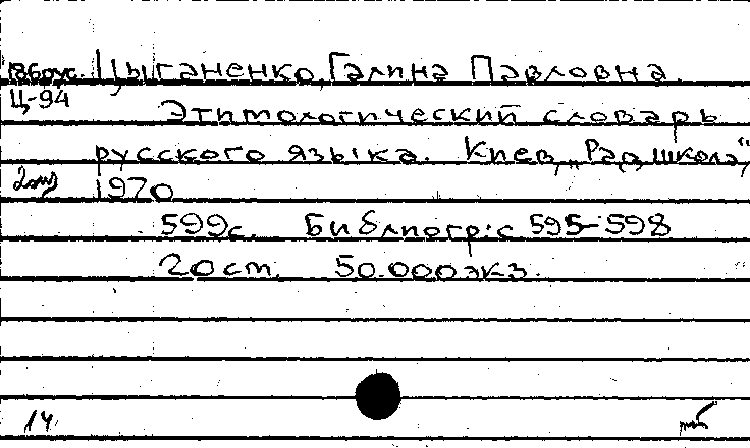 Цыганенко, Галина Павловна.
Ц-94
Этимологический словарь
русского языка. Киев, „Рад. школа",
1970
599с. Библиогр: с 595-598
20 ст. 50.000 экз.
14